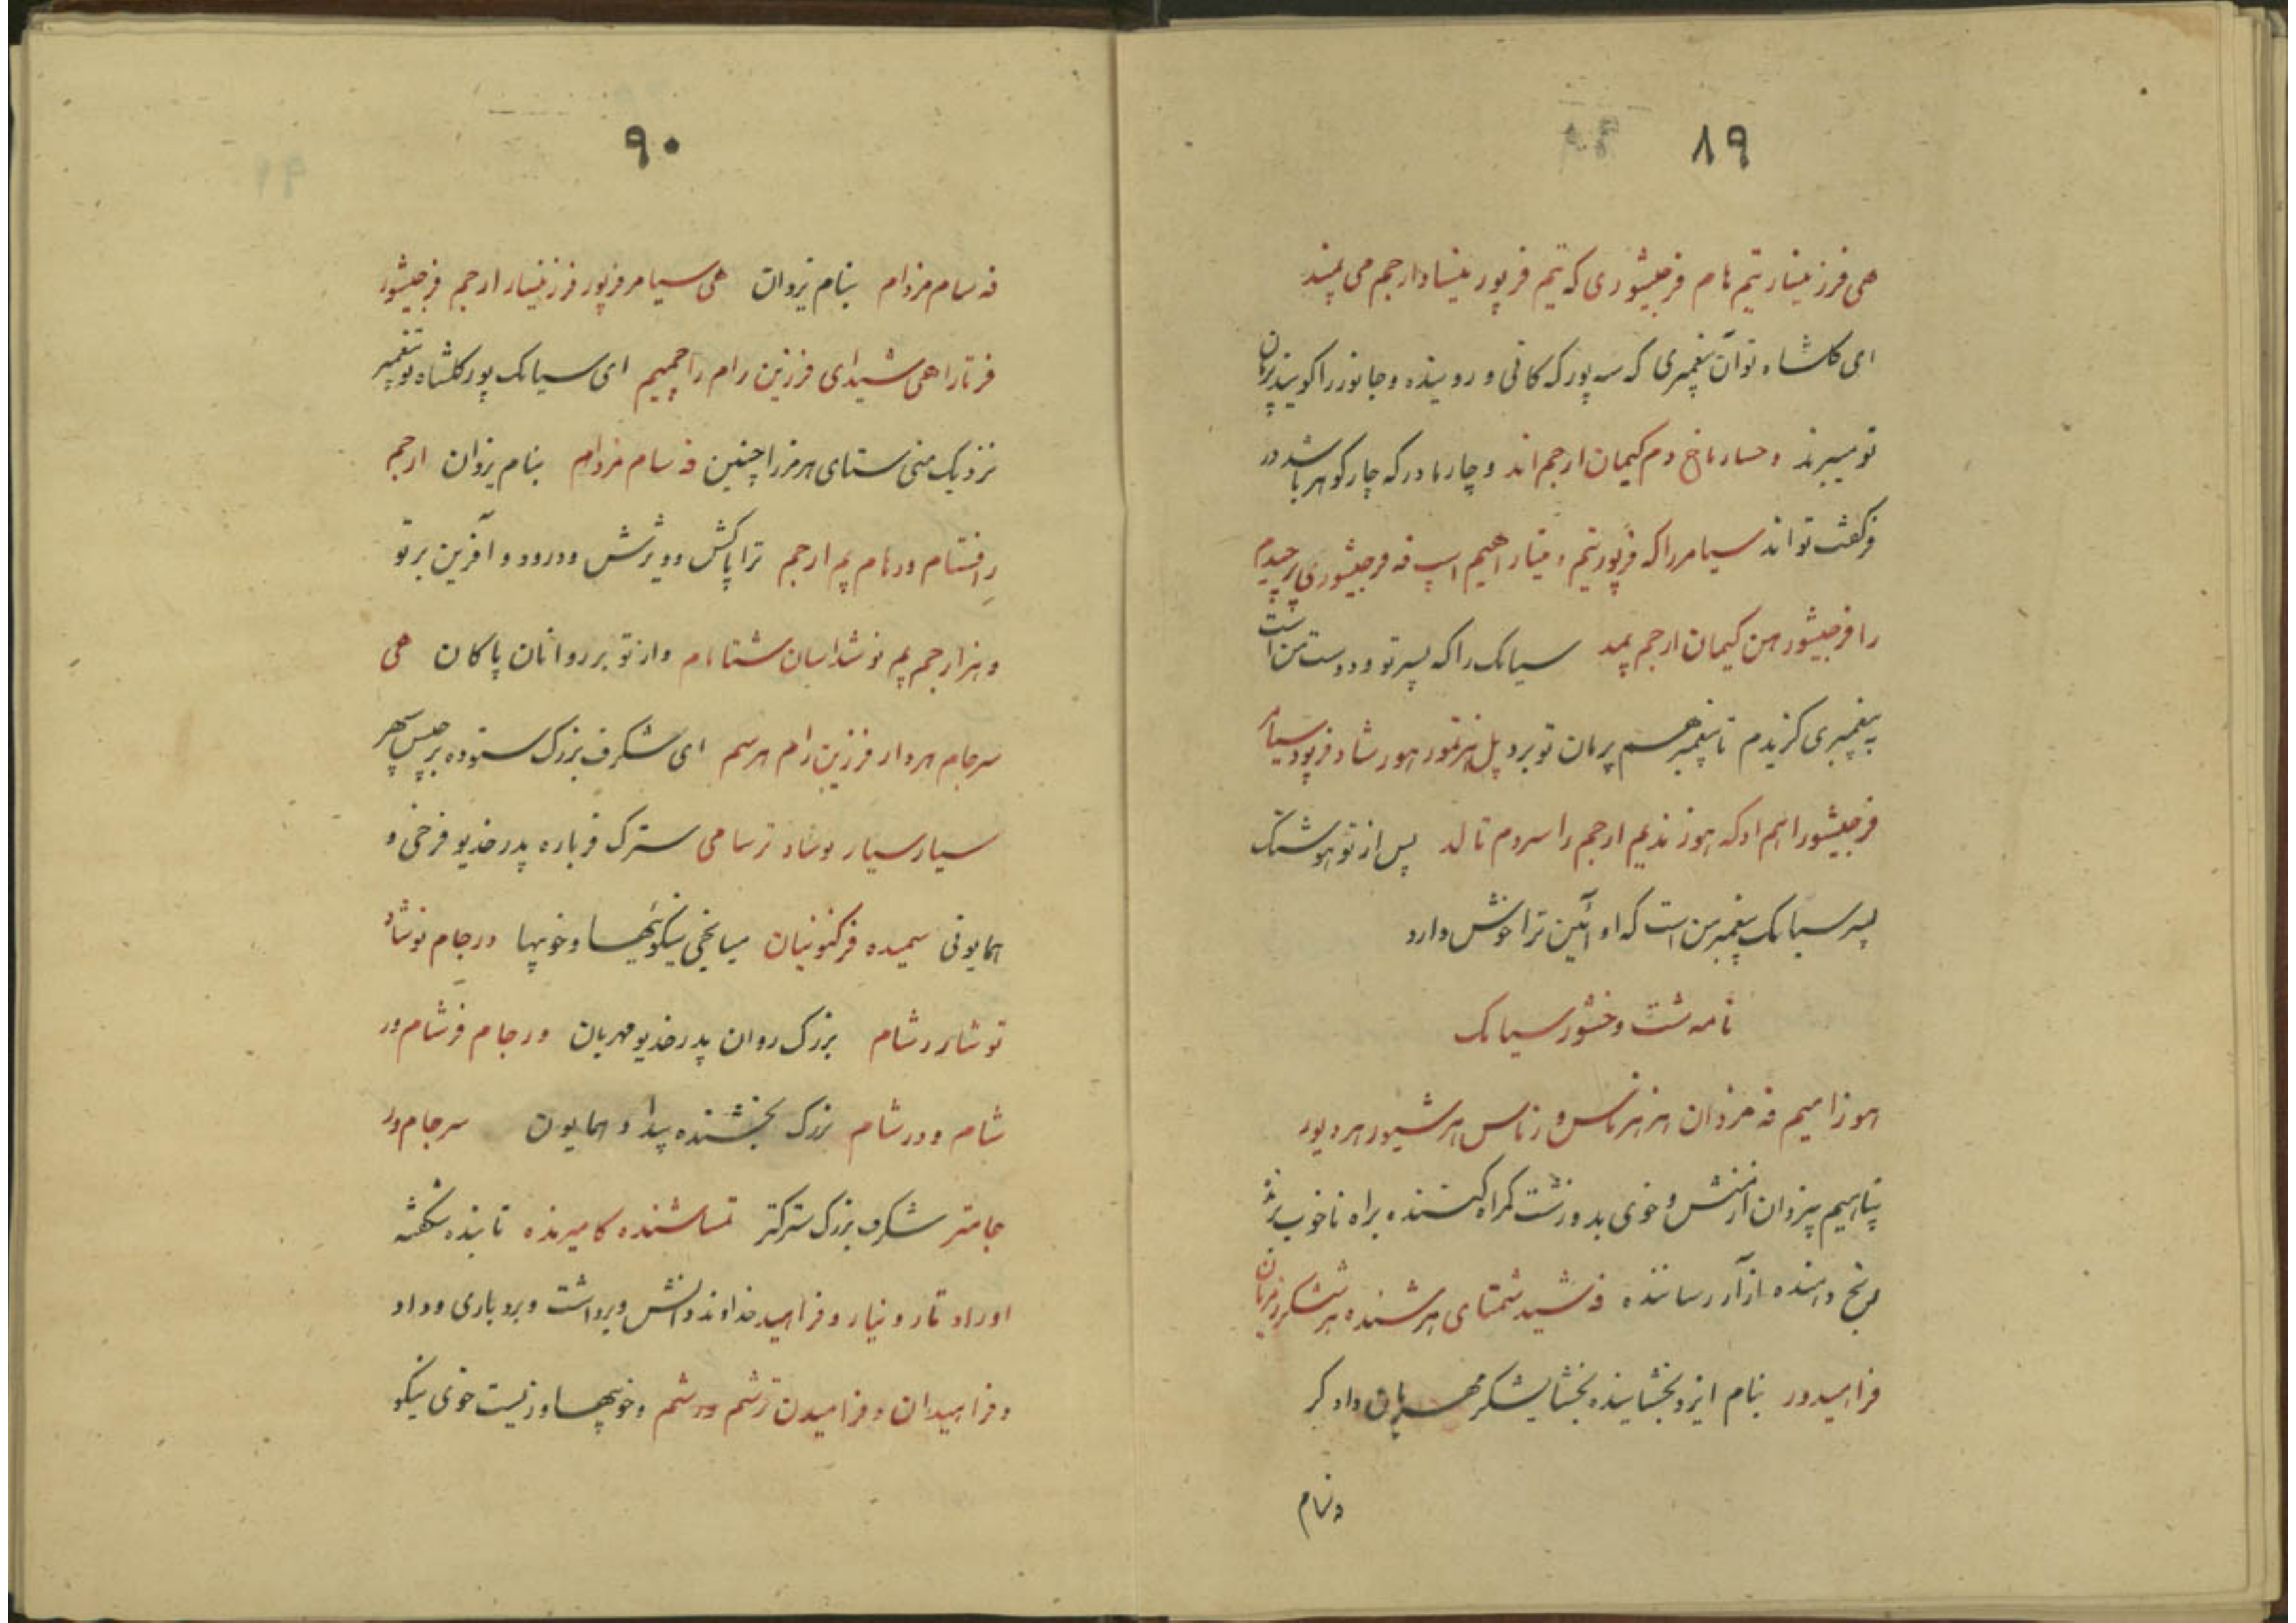 ۸۹
هی فرزینسار تیم نام فرجیشوری که تیم فرپور مینساد ارجم می پمند
ای گلشاه تو آن پیغمبری که سه پور که کانی و روینده و جانور را گویند پرمان
تو میبرند و حسار ماخ دم کیمان ارجم اند و چار مادر که چار گوهر باشد در
فرگفت تو اند سیامر را که فرپور تیم و میتار اهیم اسپ فه فرجیشوری پرجیدم
را فرجیشور هن کیمان ارجم پمد سیامک را که پسر تو و دوست من است
به پیغمبری گزیدم تا پیغمبر هم پرمان تو برد پل هرتمور هورشاد فرپور سیامر
فرجیشور اهم اد که هوز ندیم ارجم را سردم تالد پس از تو هوشنگ
پسر سیامک پیغمبر من است که او آئین ترا خوش دارد
نامه شت و خشور سیامک
هوزامیم فه مزدان هز هزماس وزماس هرشیور هردیور
پناهیم بیزدان از منش و خوی بد و زشت گمراه کننده براه ناخوب برنده
رنج دهنده آزار رساننده فه شید شمتای هرشنده هرششگر زمرپان
فراهیدور بنام ایزد بخشاینده بخشایشگر مهربان دادگر
و بنام
۹۰
فه سام مزدام بنام یزدان هی سیامر فرپور فرزینسار ارجم فرجیشور
فرتارا هی شیدای فرزین رام را چمیم ای سیامک پور گلشاه تو پیغمبر
نزدیک منی ستای هرمز را چنین فه سام مزدام بنام یزدان ارجم
رافنتام ودرنام پم ارجم ترا پاکش و ویژش و درود و آفرین بر تو
و هز ارجم پم نوشداسان شتانام و از تو بر روانان پاکان هی
سرجام هردار فرزین رام هرسم ای شگرف بزرگ ستوده برجیس سپهر
سیار سیار نوشاد ترسامی سترگ فرباره پدر خدیو فرخی و
همایونی سمیده فرکنونیان میانجی نیکوئیها و خوبیها درجام نوشاد
توشار رشام بزرگ روان پدر خدیو مهربان ورجام فرشام ور
شام و درشام بزرگ بخشنده پیدا و همایون سرجام ور
جامتر شگرف بزرگ سترگتر تساشنده کامیرنده تابنده شکفته
اوراد تار و نیار و فراهید خداوند دانش و برداشت و بردباری و داد
و فراهیدان و فرامیدن ترشم درشم و خوبیها و زیست خوی نیکو